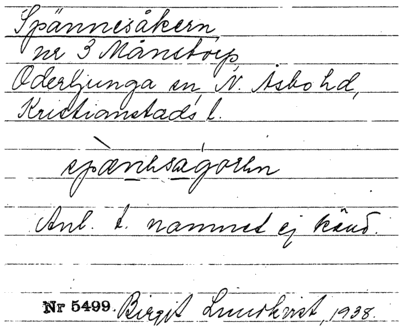 Spännesåkern,
nr 3 Månstorp,
Oderljunga sn, N. Åsbo hd,
Kristianstads l.
spæ̀nesågorn
Anl. t. namnet ej känd.
Nr 5499. Birgit Lundkvist, 1938.